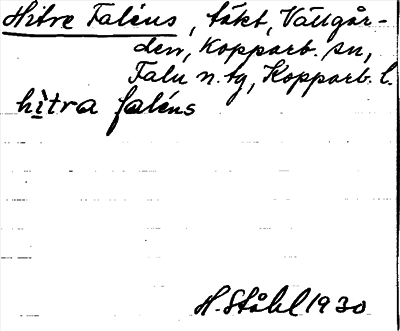 Hitre Faléns, täkt, Vällgår-
den, Kopparb. sn,
Falu n. tg, Kopparb. l.
hitra faléns
H. Ståhl 1930